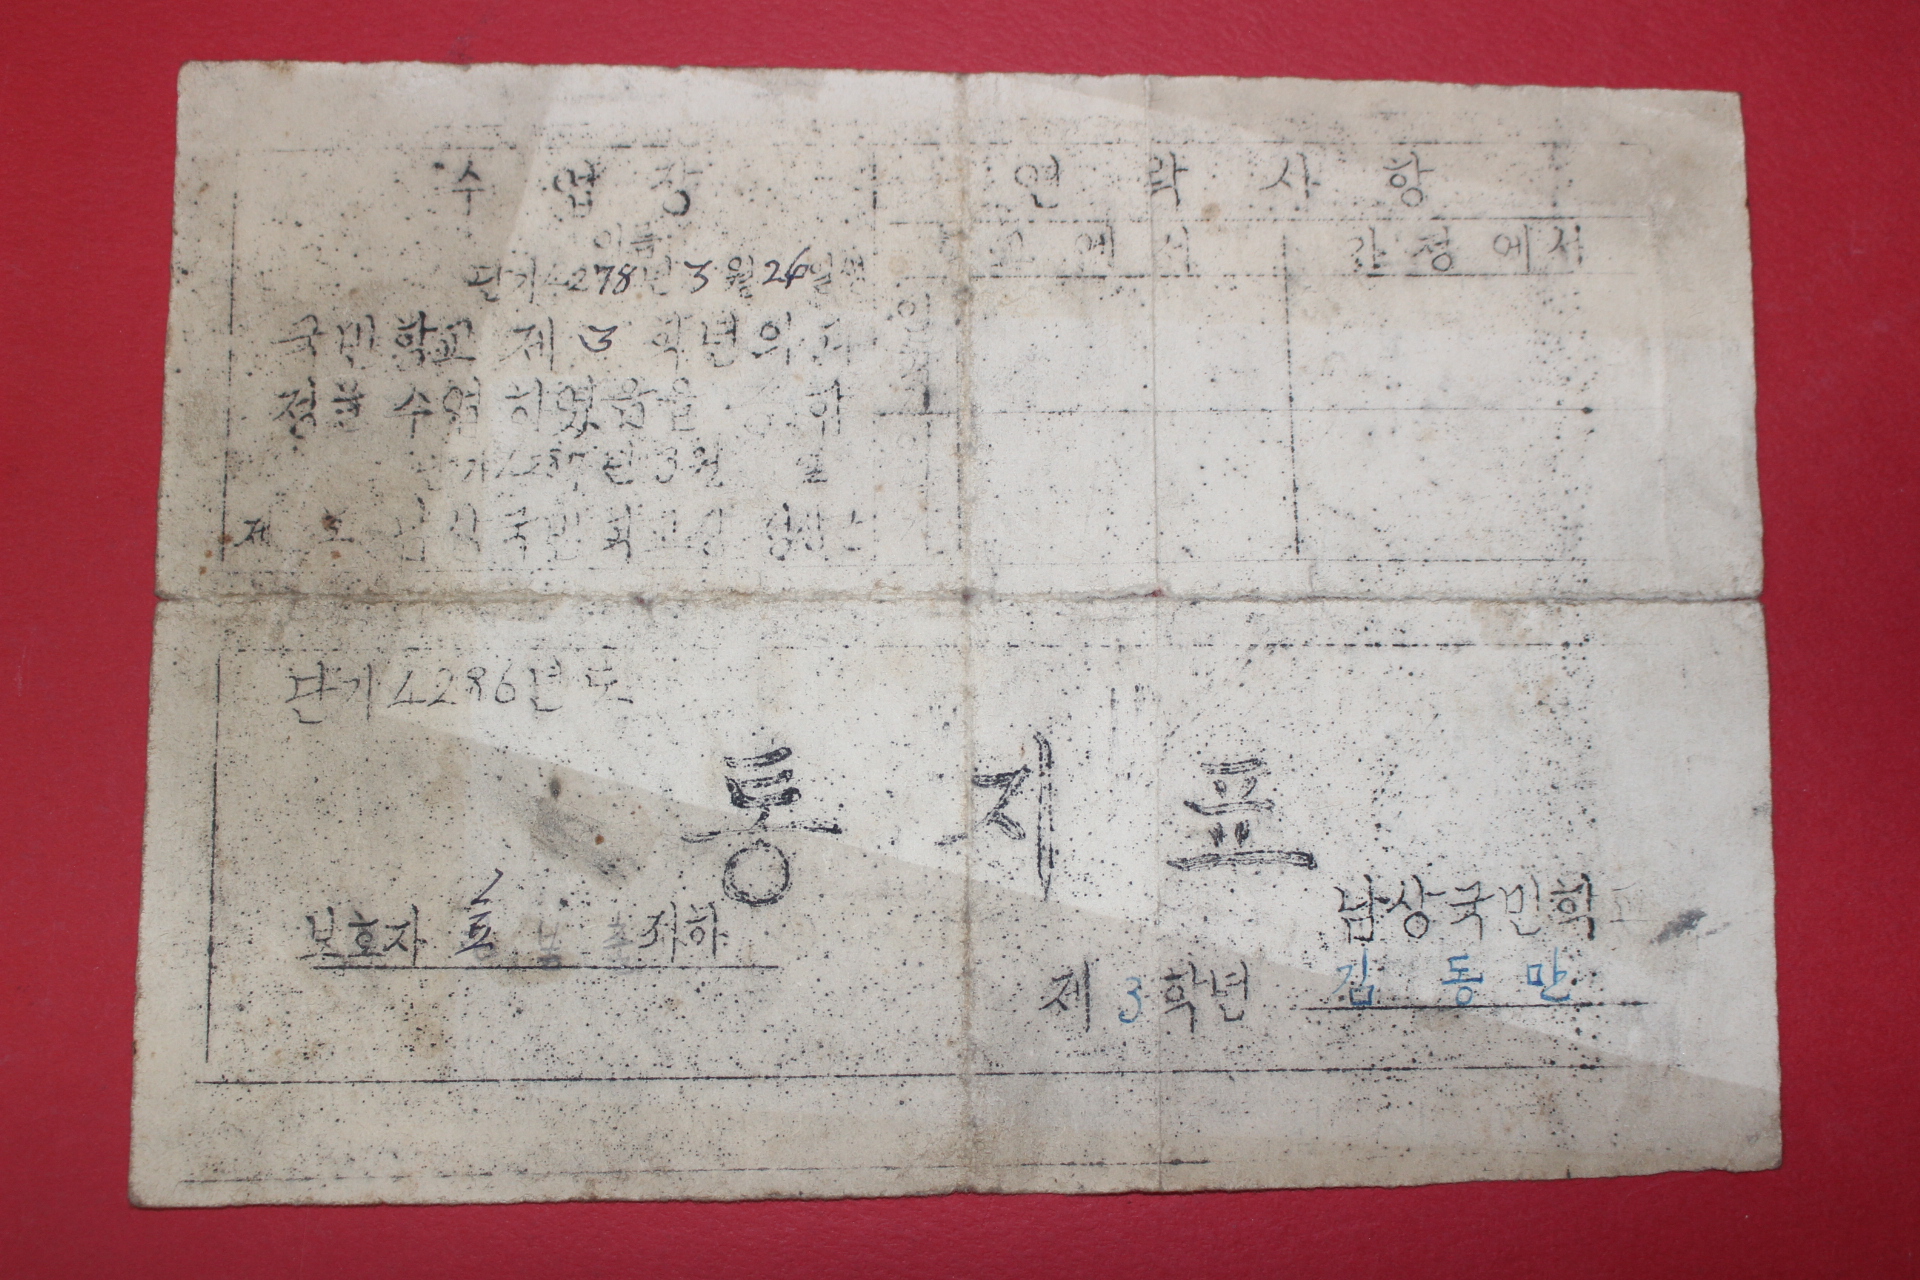 수업장
이름
단기4278년 3월 26일생
국민학교 제 3 학년의 과
정을 수업하였음을
단기4287년 3월 일
제 호 남상국민학교장
연락사항
교에서
가정에서
단기 4286년도
통지표
보호자 좌하
남상국민학교
제 3 학년 김동만